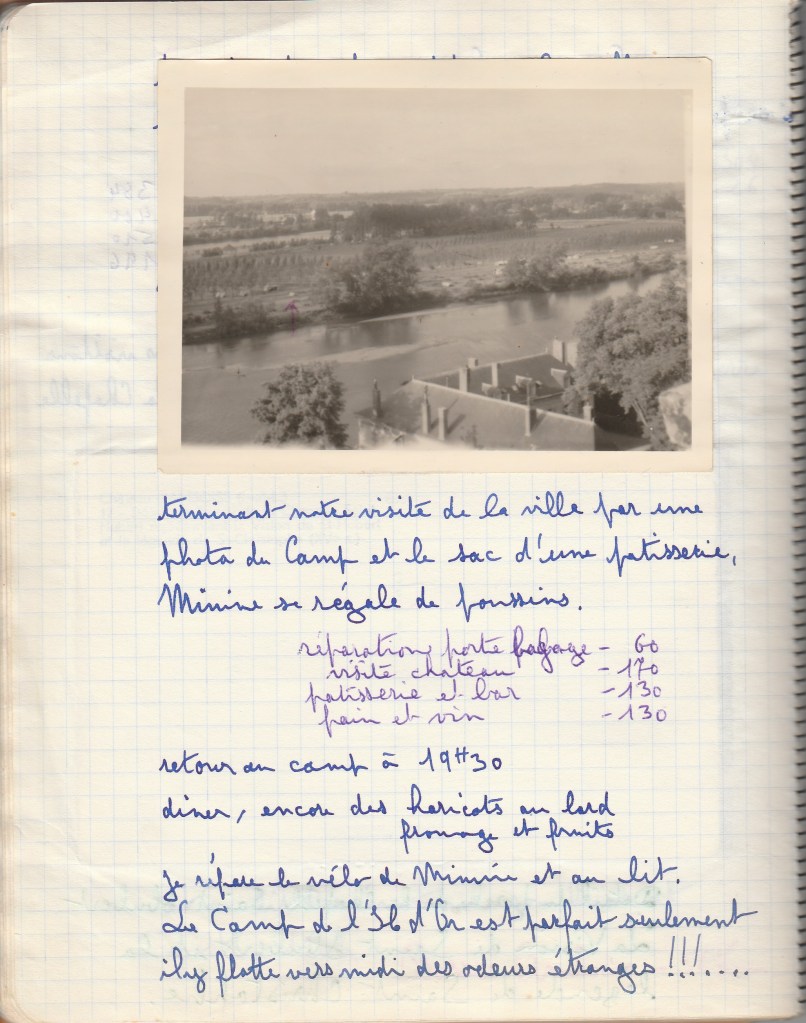 terminant notre visite de la ville par une
photo du Camp et le sac d'une patisserie,
Minine se régale de poussins.
réparation porte bagage - 60
visite chateau - 170
patisserie et bar - 130
pain et vin - 130
retour au camp à 19H30
diner, encore des haricots au lard
fromage et fruits
Je répare le vélo de Minine et au lit.
Le Camp de l'Ile d'Or est parfait seulement
il y flotte vers midi des odeurs étranges !!!.....